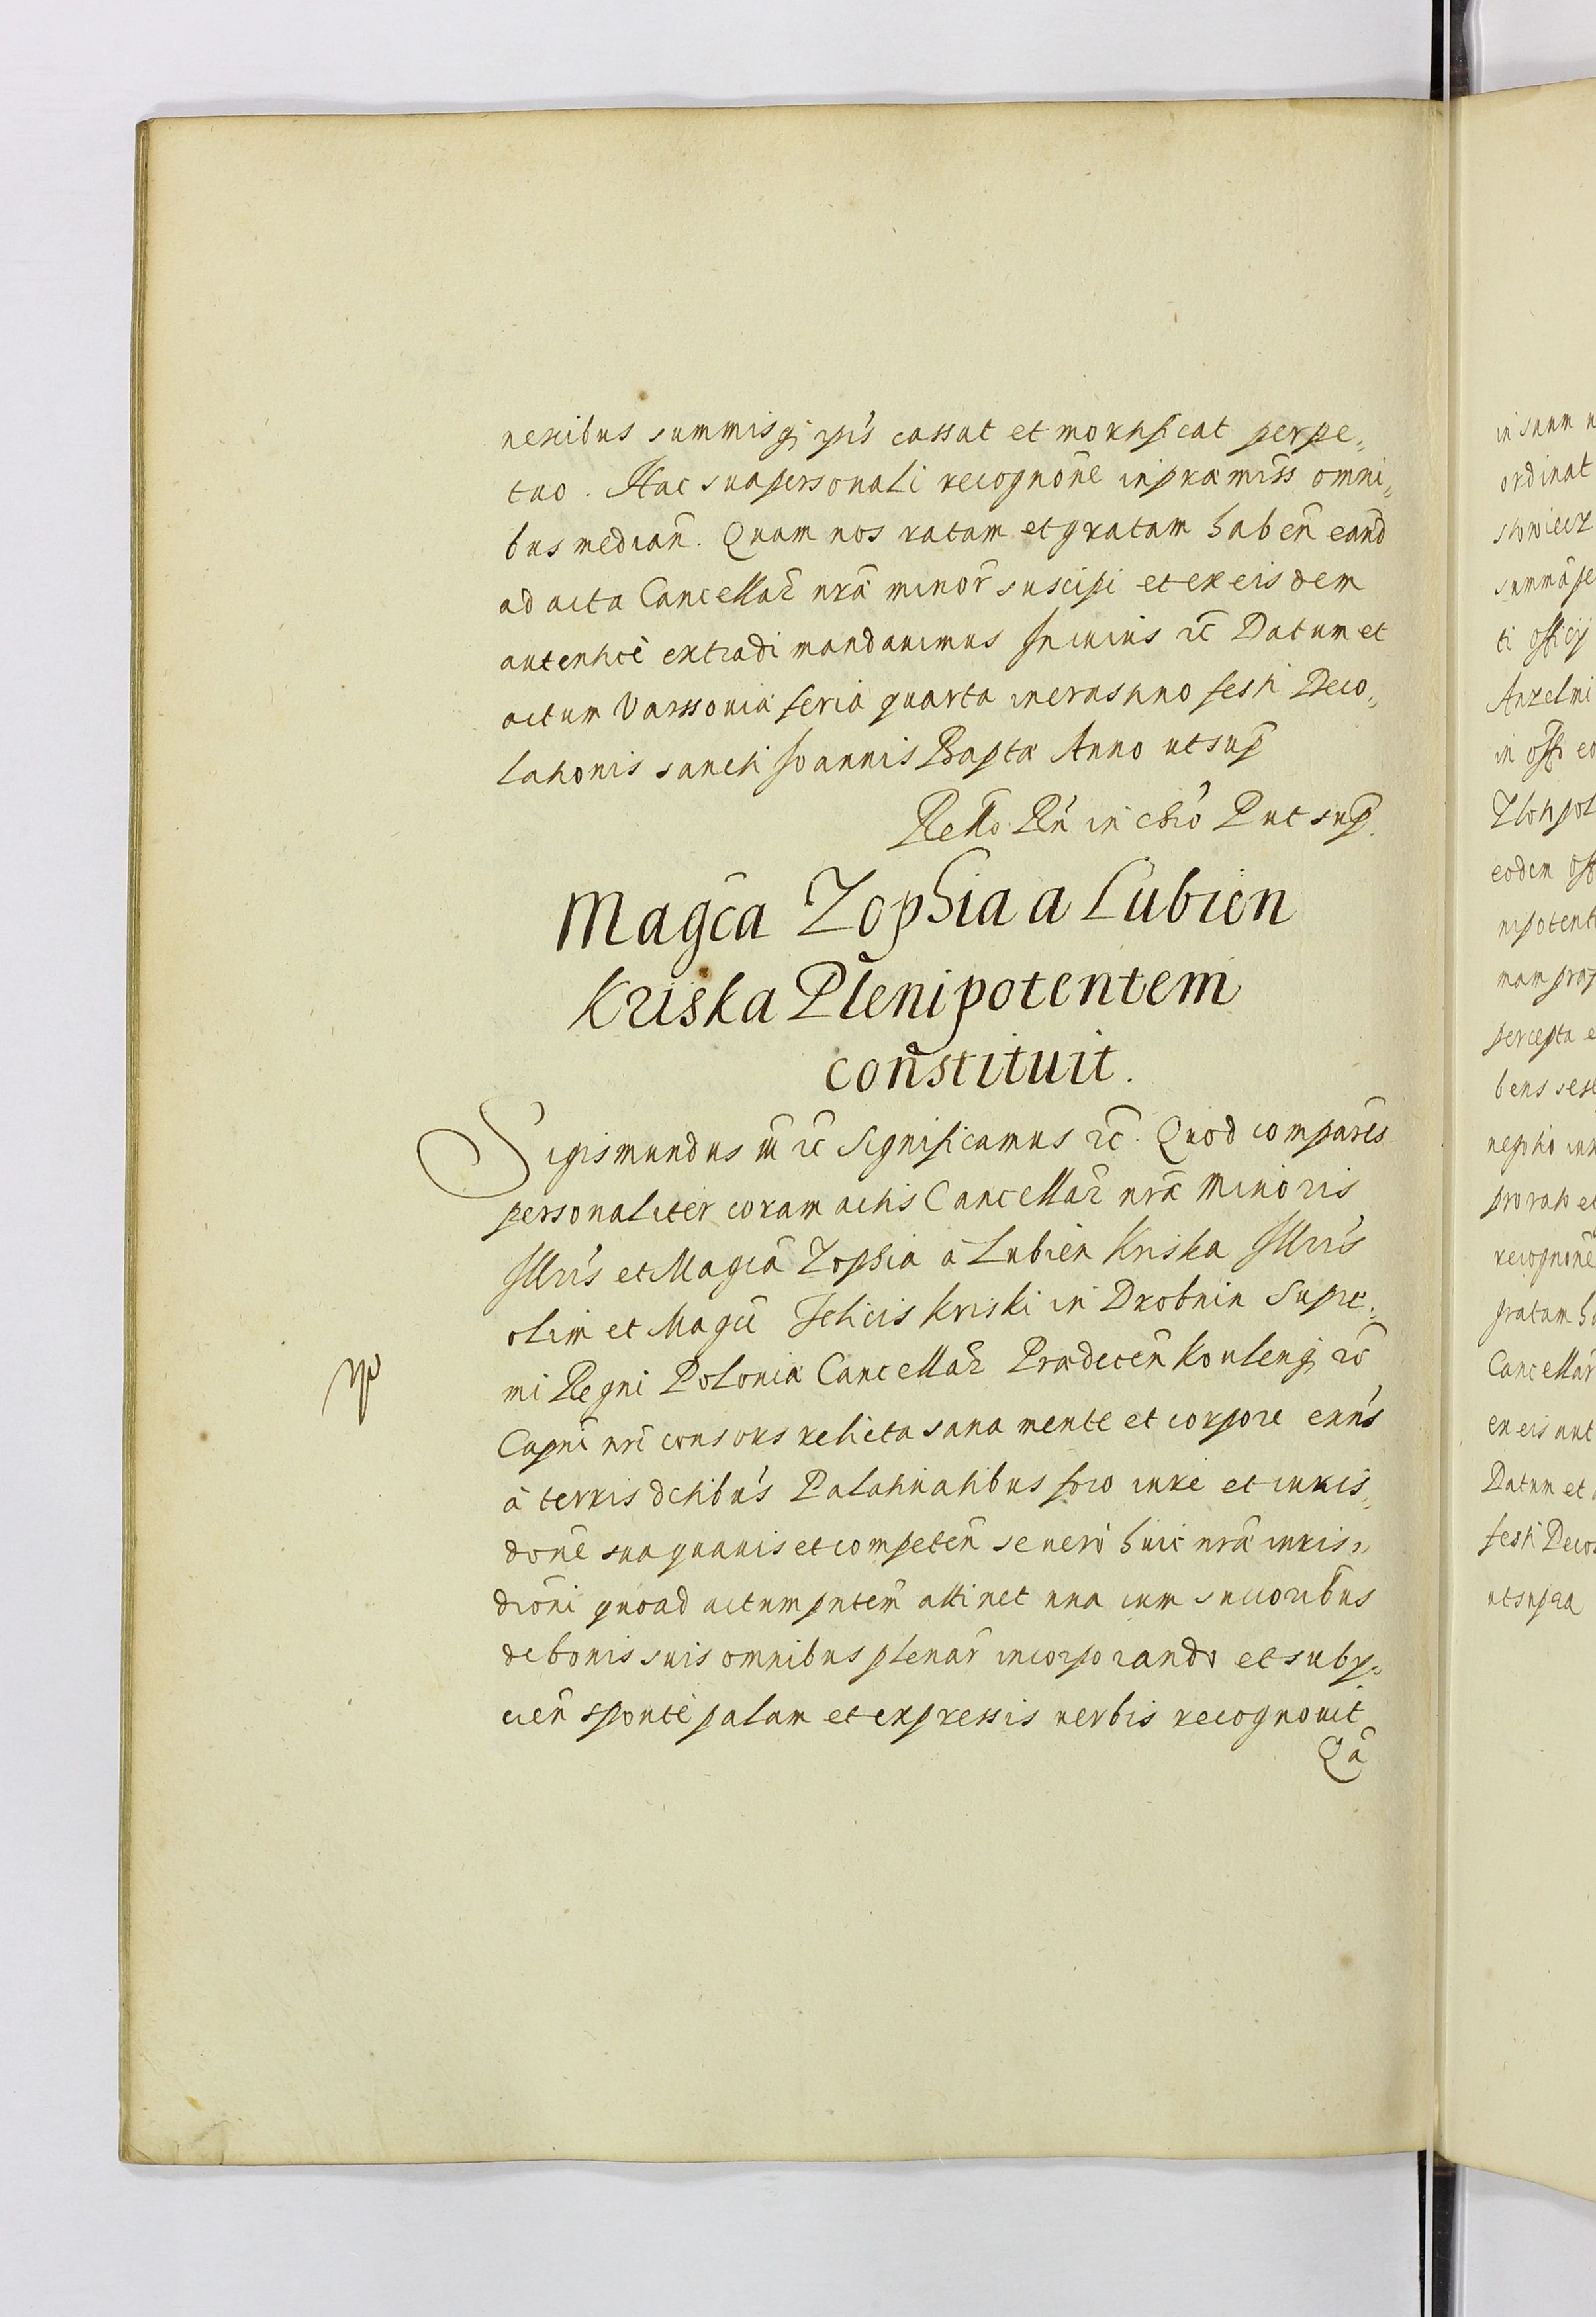 nexibus summisq; ipīs cassat et mortificat perpe„
tuo. Hac sua personali recognōne in præmīss omni„
bus median̄. Quam nos ratam et gratam habēn eand̄
ad acta Cancellar̄ nrǣ minor̄ suscipi et ex eisdem
autenticè extradi mandauimus In cuius rc̄ Datum et
actum Varssouiæ feria quarta in crastino festi Deco„
lationis sancti Ioannis Baptæ Anno ut sup̄
Rello Rn̄ in chrō P ut sup̄.
Magc̄a Zophia a Lubien
Kriska Plenipotentem
constituit.
Sigismundus iii rc̄ Significamus rc̄. Quod comparēs
personaliter coram actis Cancellar̄ nrǣ Minoris
Illrīs et Magcā Zophia à Lubien Kriska Illrīs
olim et Magcī Felicis Kriski in Drobnin Supre„
mi Regni Poloniæ Cancellar̄ Prædecēn
Capnī nrī consors relicta sana mente et corpore exn̄s
à terris dc̄tibus Palatinatibus foro iure et iuris„
dōne sua quauis et competēn se uerò huic nrǣ iuris„
dicōni quoad actum pn̄tem attinet una cum succoribus
de bonis suis omnibus plenar̄ incorporando et subij„
cien̄ sponte palam et expressis uerbis recognouit
Qa
in suum
ordinat
summā pe
ti officij
Anzelmi
in off
eodem off
nipotent
mam prop
percepta e
bens sese
pro rato et
recognōne
gratam ha
Cancellar
ex eis aut
Datum et
festi Decol
ut supra